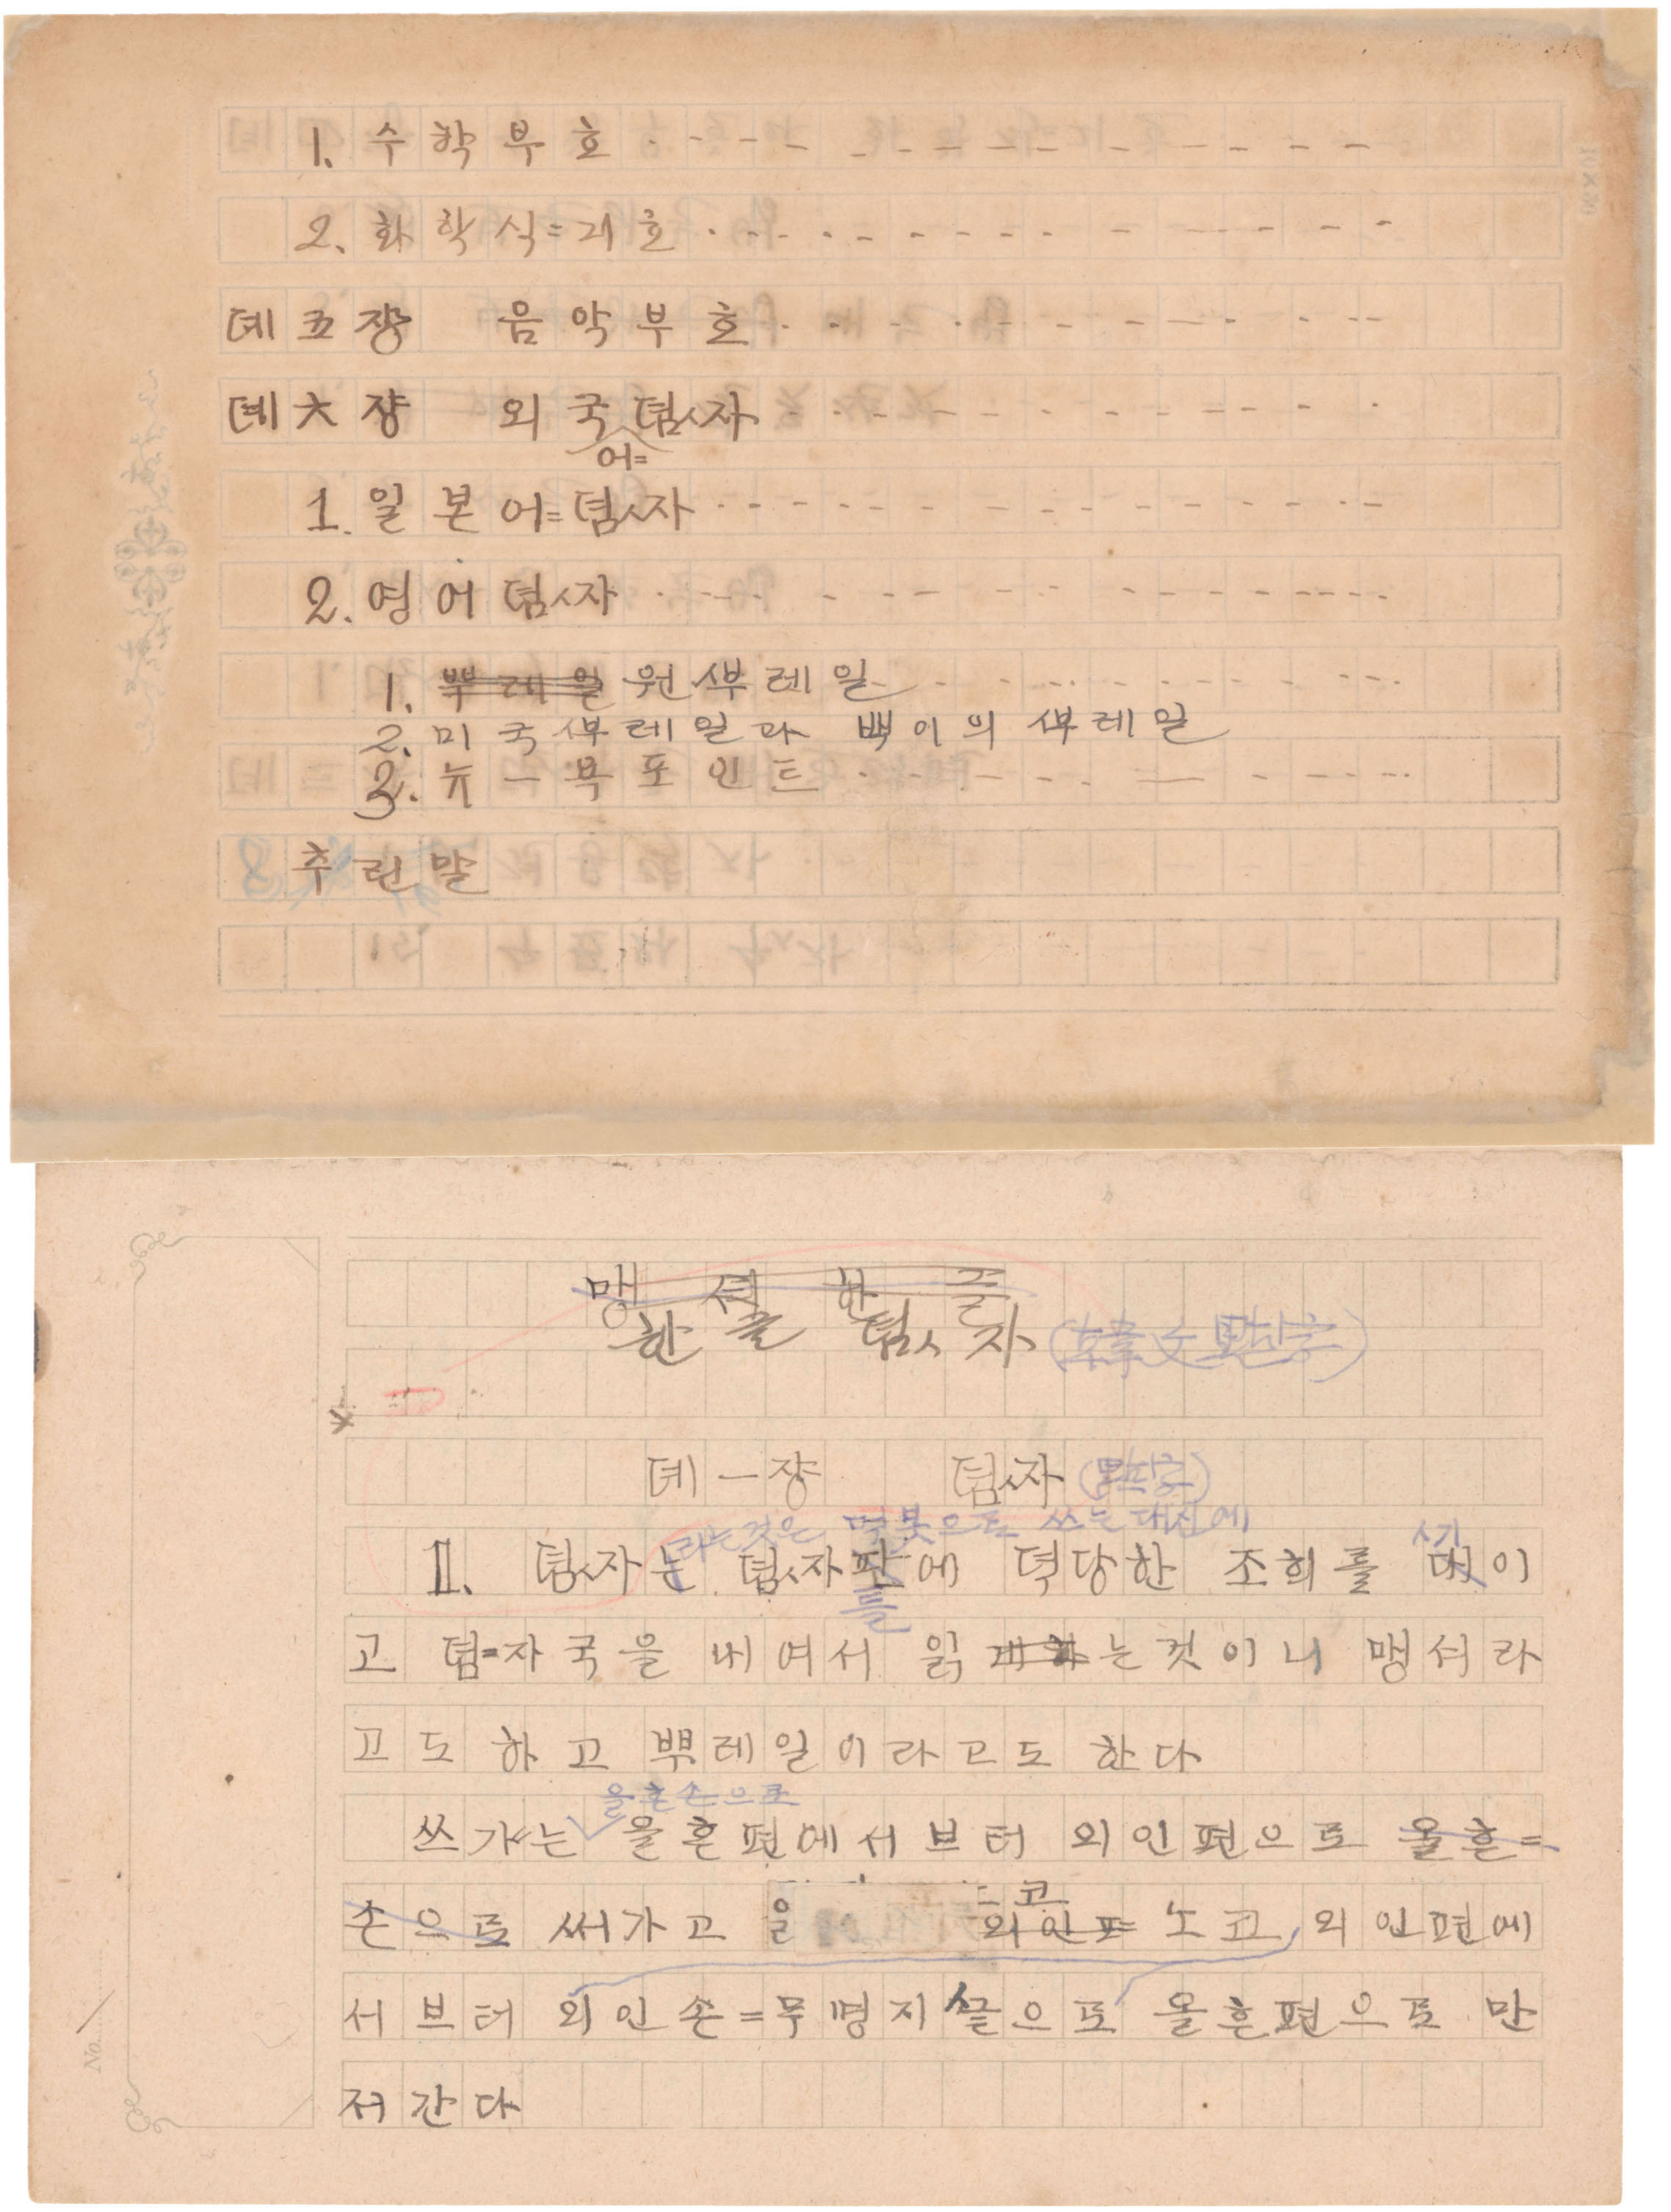 1. 수학부호
2. 화학식=긔호
뎨五쟝 음악부호
뎨六쟝 외국어=뎜ㅅ자
1. 일본어=뎜ㅅ자
2. 영어뎜ㅅ자
1. 뿌레일 원ㅅ부레일
2. 미국ㅅ부레일과 백이의 ㅅ부레일
3. 뉴ㅡ욕포인트
추린말
맹셔한글
한글 뎜ㅅ자 (韓文點字)
뎨一쟝 뎜ㅅ자 (點字)
라는것은 먹붓으로 쓰는대신에
1. 뎜ㅅ자는 뎜ㅅ자판에 뎍당한 조희를
틀
고 뎜=자국을 내여서 읽게하는것이니 맹셔라
고도 하고 뿌레일이라고도 한다
올흔손으로
쓰기는 올흔편에서브터 외인편으로 올흔=
손으로 써가고 을 외인편 노코 외인편에
서브터 외인손=무명지ㅅ긑으로 올흔편으로 만
저간다
No.